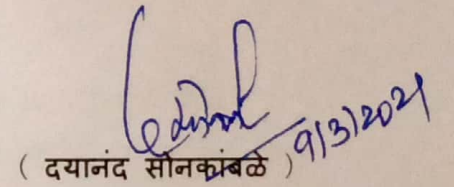 9/3/2021
( दयानंद सोनकांबळे )